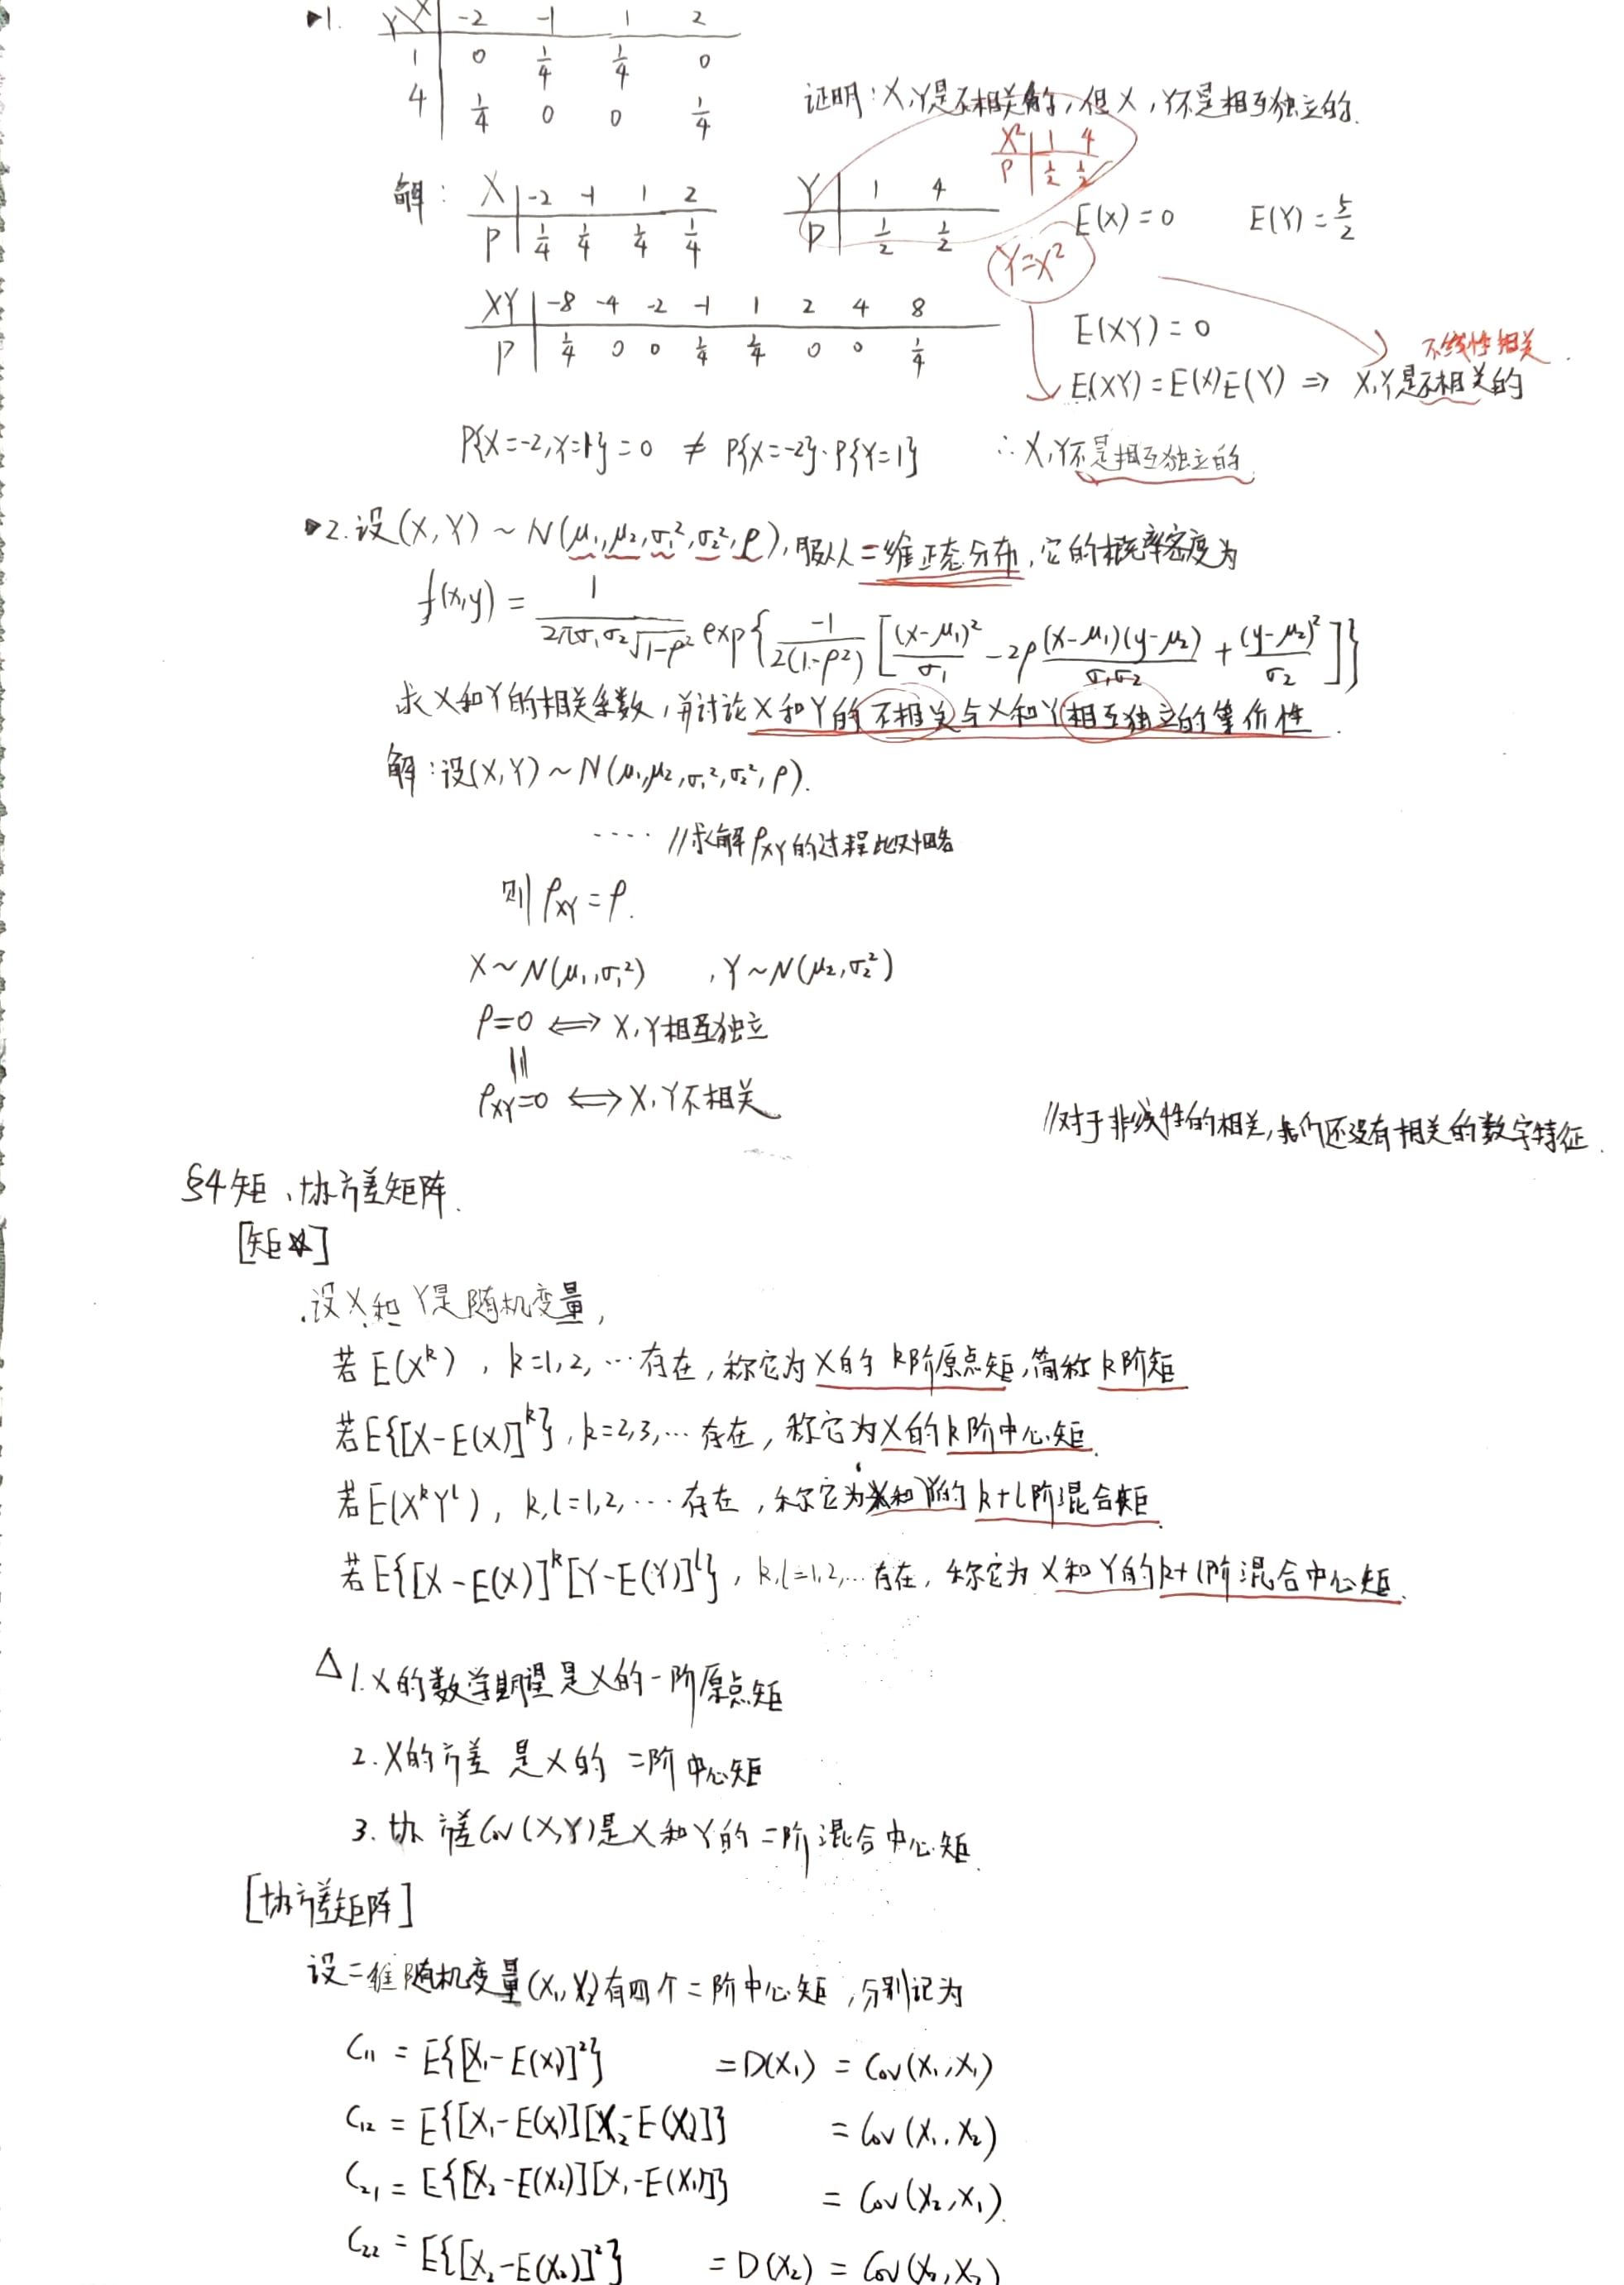 ▶1. Y\X | -2 -1 1 2
1 | 0 1/4 1/4 0
4 | 1/4 0 0 1/4
证明：X,Y是不相关的，但X，Y不是相互独立的.
X² | 1 4
P | 1/2 1/2
解： X | -2 -1 1 2 Y | 1 4
P | 1/4 1/4 1/4 1/4 P | 1/2 1/2 E(X)=0 E(Y)=5/2
Y=X²
XY | -8 -4 -2 -1 1 2 4 8 E(XY)=0
P | 1/4 0 0 1/4 1/4 0 0 1/4 不线性相关.
E(XY)=E(X)E(Y) ⇒ X,Y是不相关的
P{X=-2,Y=1}=0 ≠ P{X=-2}·P{Y=1} ∴X,Y不是相互独立的.
▶2.设(X,Y)~N(μ₁,μ₂,σ₁²,σ₂²,ρ),服从二维正态分布,它的概率密度为
f(x,y) = 1/(2πσ₁σ₂√(1-ρ²)) exp{ -1/(2(1-ρ²)) [ (x-μ₁)²/σ₁ -2ρ (x-μ₁)(y-μ₂)/(σ₁σ₂) + (y-μ₂)²/σ₂ ] }
求X和Y的相关系数,并讨论X和Y的不相关与X和Y相互独立的等价性.
解:设(X,Y)~N(μ₁,μ₂,σ₁²,σ₂²,ρ).
···· //求解ρXY的过程此处略
则ρXY=ρ.
X~N(μ₁,σ₁²) ,Y~N(μ₂,σ₂²)
ρ=0 ⟺ X,Y相互独立
||
ρXY=0 ⟺ X,Y不相关
//对于非线性的相关,我们还没有相关的数字特征.
§4矩、协方差矩阵.
[矩☆]
.设X和Y是随机变量,
若E(X^k), k=1,2,…存在,称它为X的k阶原点矩,简称k阶矩
若E{[X-E(X)]^k}, k=2,3,…存在,称它为X的k阶中心矩.
若E(X^kY^l), k,l=1,2,…存在,称它为X和Y的k+l阶混合矩.
若E{[X-E(X)]^k[Y-E(Y)]^l}, k,l=1,2,…存在,称它为X和Y的k+l阶混合中心矩.
△1.X的数学期望是X的一阶原点矩
2.X的方差是X的二阶中心矩
3.协方差Cov(X,Y)是X和Y的二阶混合中心矩.
[协方差矩阵]
设二维随机变量(X₁,X₂)有四个二阶中心矩,分别记为
C₁₁ = E{[X₁-E(X₁)]²} =D(X₁) = Cov(X₁,X₁)
C₁₂ = E{[X₁-E(X₁)][X₂-E(X₂)]} = Cov(X₁,X₂)
C₂₁ = E{[X₂-E(X₂)][X₁-E(X₁)]} = Cov(X₂,X₁).
C₂₂ = E{[X₂-E(X₂)]²} =D(X₂) = Cov(X₂,X₂)